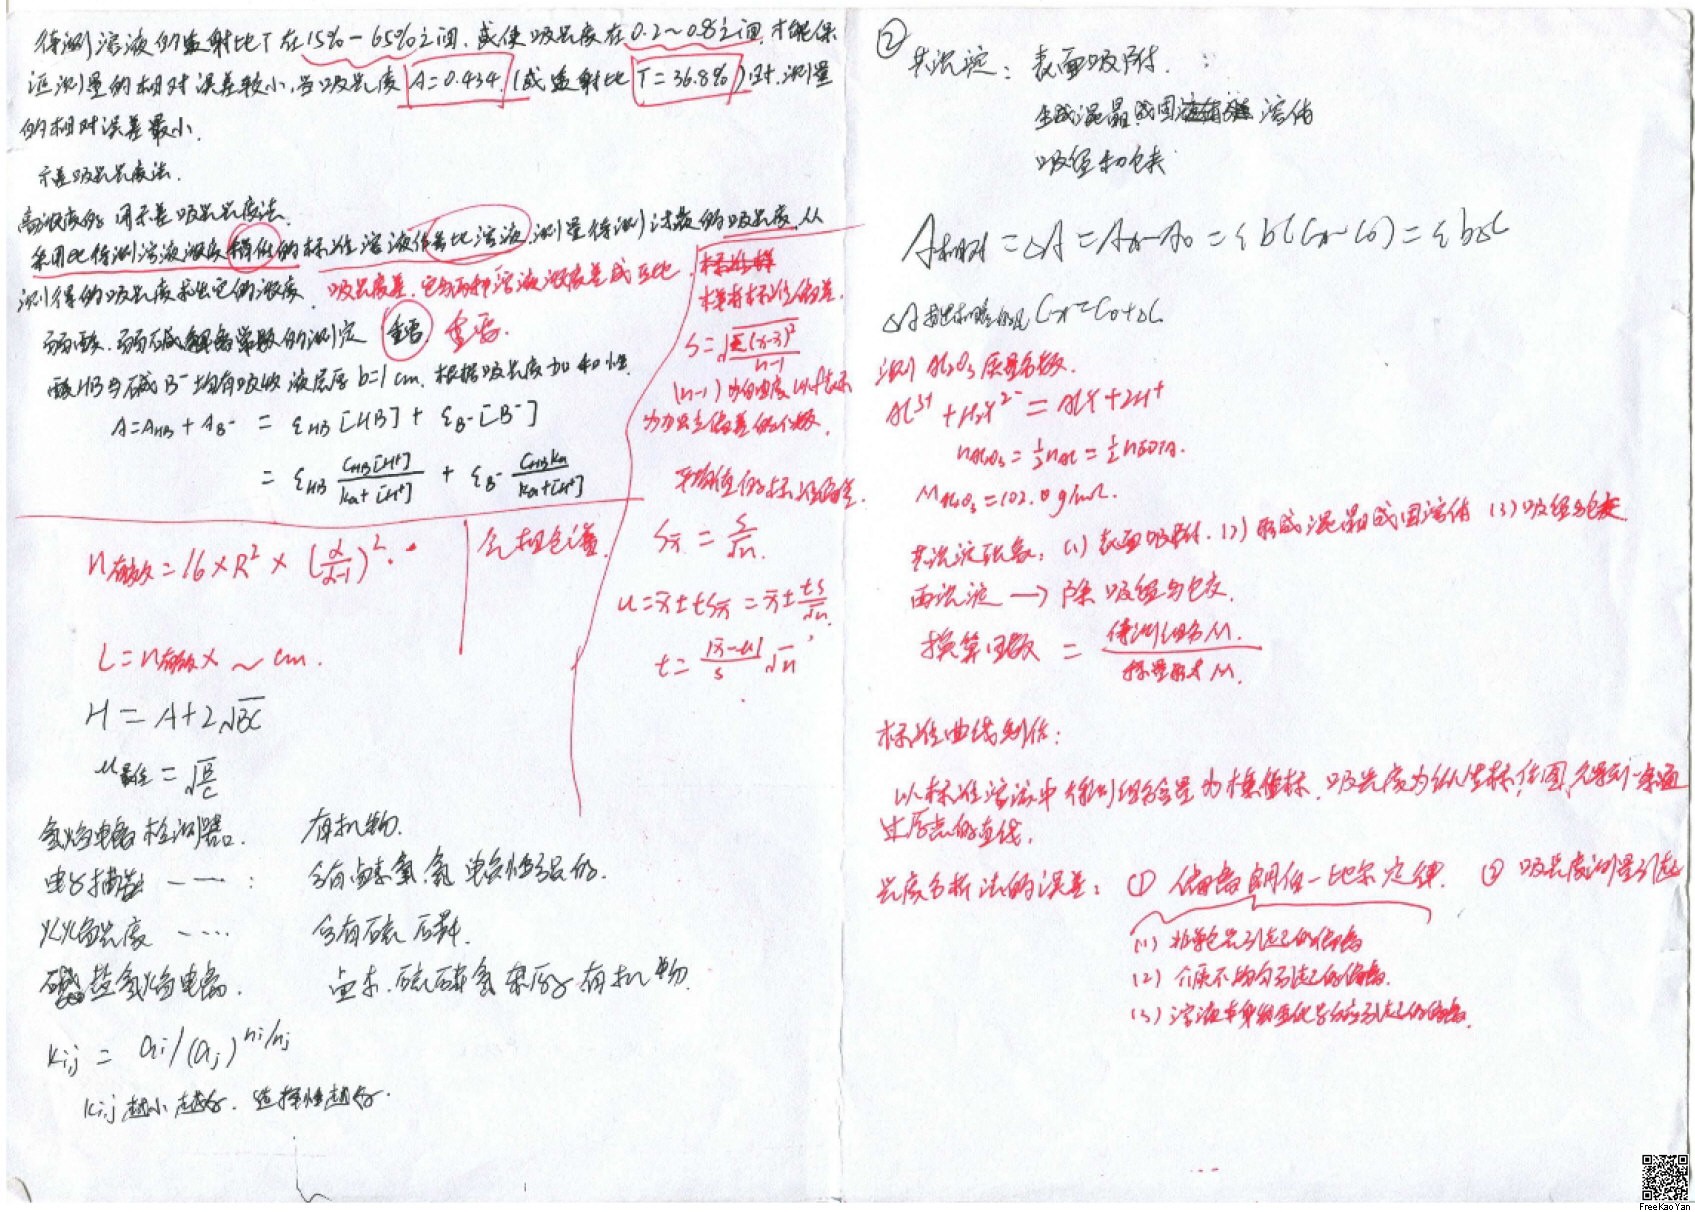 待测溶液的透射比T在15%-65%之间,或使吸光度在0.2~0.8之间,才能保
证测量的相对误差较小,当吸光度A=0.434(或透射比T=36.8%)时,测量
的相对误差最小.
示差吸光光度法.
高浓度的用示差吸光光度法.
采用比待测溶液浓度稍低的标准溶液作参比溶液,测量待测试液的吸光度,从
测得的吸光度求出它的浓度.
吸光度差,它与两种溶液浓度差成正比.
弱酸、弱碱解离常数的测定 重要 重要.
酸HB与碱B⁻均有吸收 液层厚b=1cm.根据吸光度加和性.
A=A_HB+A_B⁻ = ε_HB[HB]+ε_B⁻[B⁻]
= ε_HB C_HB[H⁺]/(Ka+[H⁺]) + ε_B⁻ C_HB Ka/(Ka+[H⁺])
样本标准偏差.
S=√(Σ(x-x̄)²/(n-1))
(n-1)为自由度
平均值的标准偏差.
S_x̄ = S/√n.
u=x̄±tS_x̄=x̄±tS/√n.
t=|x̄-u|/S √n
n有效=16×R²×(α/(α-1))².
气相色谱.
L=n有效×~cm.
H=A+2√BC
u最佳=√(B/C)
氢焰电离检测器. 有机物.
电子捕获 ——: 含有卤素氧、氮 电负性强的.
火焰光度 -… 含有硫磷.
磷盐氢焰电离. 卤素.硫磷氮 杂原子有机物.
Ki,j = ai/(aj)^(ni/nj)
Ki,j越小越好.选择性越好.
②
共沉淀: 表面吸附.
生成混晶或固溶体
吸留和包夹
A相对=ΔA=Ax-A0=εb(Cx-C0)=εbΔC
Cx=C0+ΔC
测Al₂O₃质量分数.
Al³⁺+H₂Y²⁻=AlY+2H⁺
nAl₂O₃=½nAl=½nEDTA.
MAl₂O₃=102.0g/mol.
共沉淀现象:(1)表面吸附.(2)形成混晶或固溶体(3)吸留与包夹.
再沉淀→除吸留与包夹.
换算因数 = 待测组分M./称量形式M.
标准曲线制作:
以标准溶液中待测组分含量为横坐标,吸光度为纵坐标,作图,得到一条通
过原点的直线.
光度分析法的误差:①偏离朗伯-比尔定律.②吸光度测量引起
(1)非单色光引起的偏离
(2)介质不均匀引起的偏离.
(3)溶液本身的化学反应引起的偏离.
FreeKaoYan